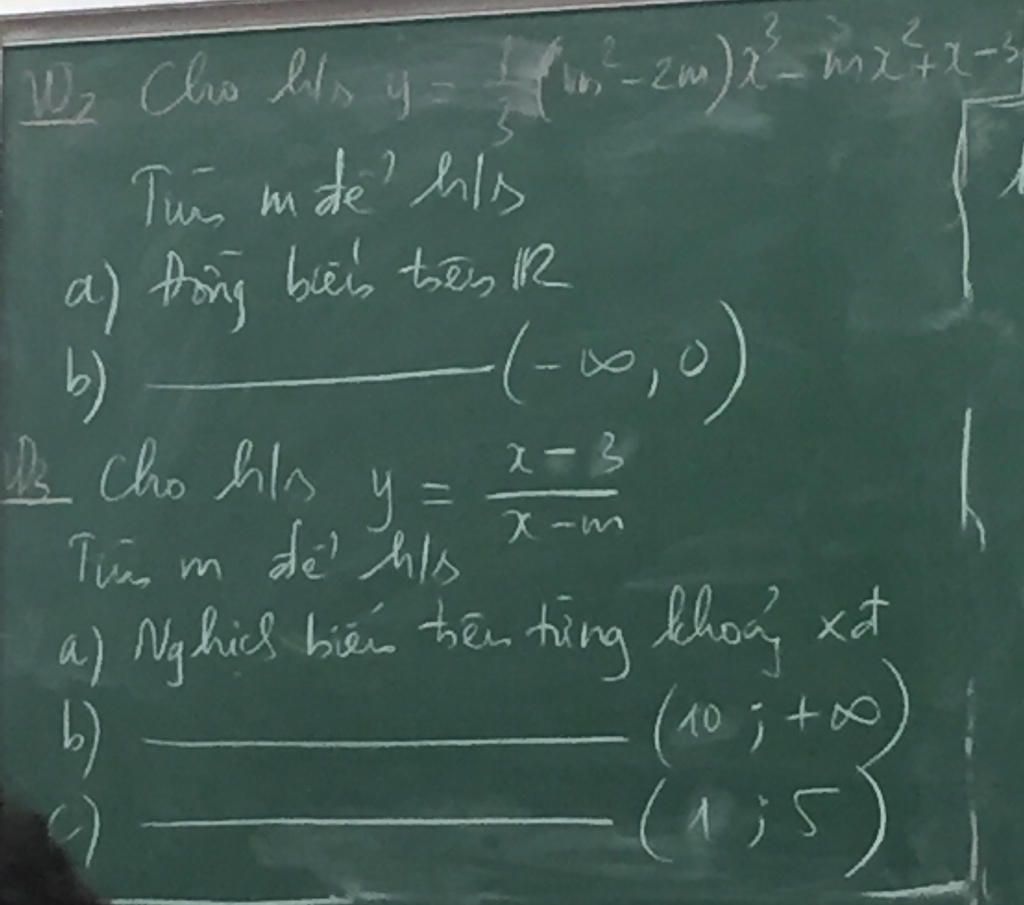 VD2 Cho h/s y = 1/3 (m² - 2m)x³ - mx² + x - 3
Tìm m để h/s
a) Đồng biến trên ℝ
b) ———— (-∞, 0)
VD3 Cho h/s y = (x - 3)/(x - m)
Tìm m để h/s
a) Nghịch biến trên từng khoảng xđ
b) ———— (10 ; +∞)
c) ———— (1 ; 5)